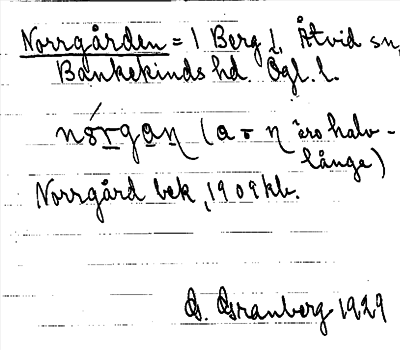 Norrgården = 1 Berg 1, Åtvid sn,
Bankekinds hd. Ögl. l.
nórgan (a o n äro halv-
långe)
Norrgård bek. 1909 kb.
G. Granberg 1929